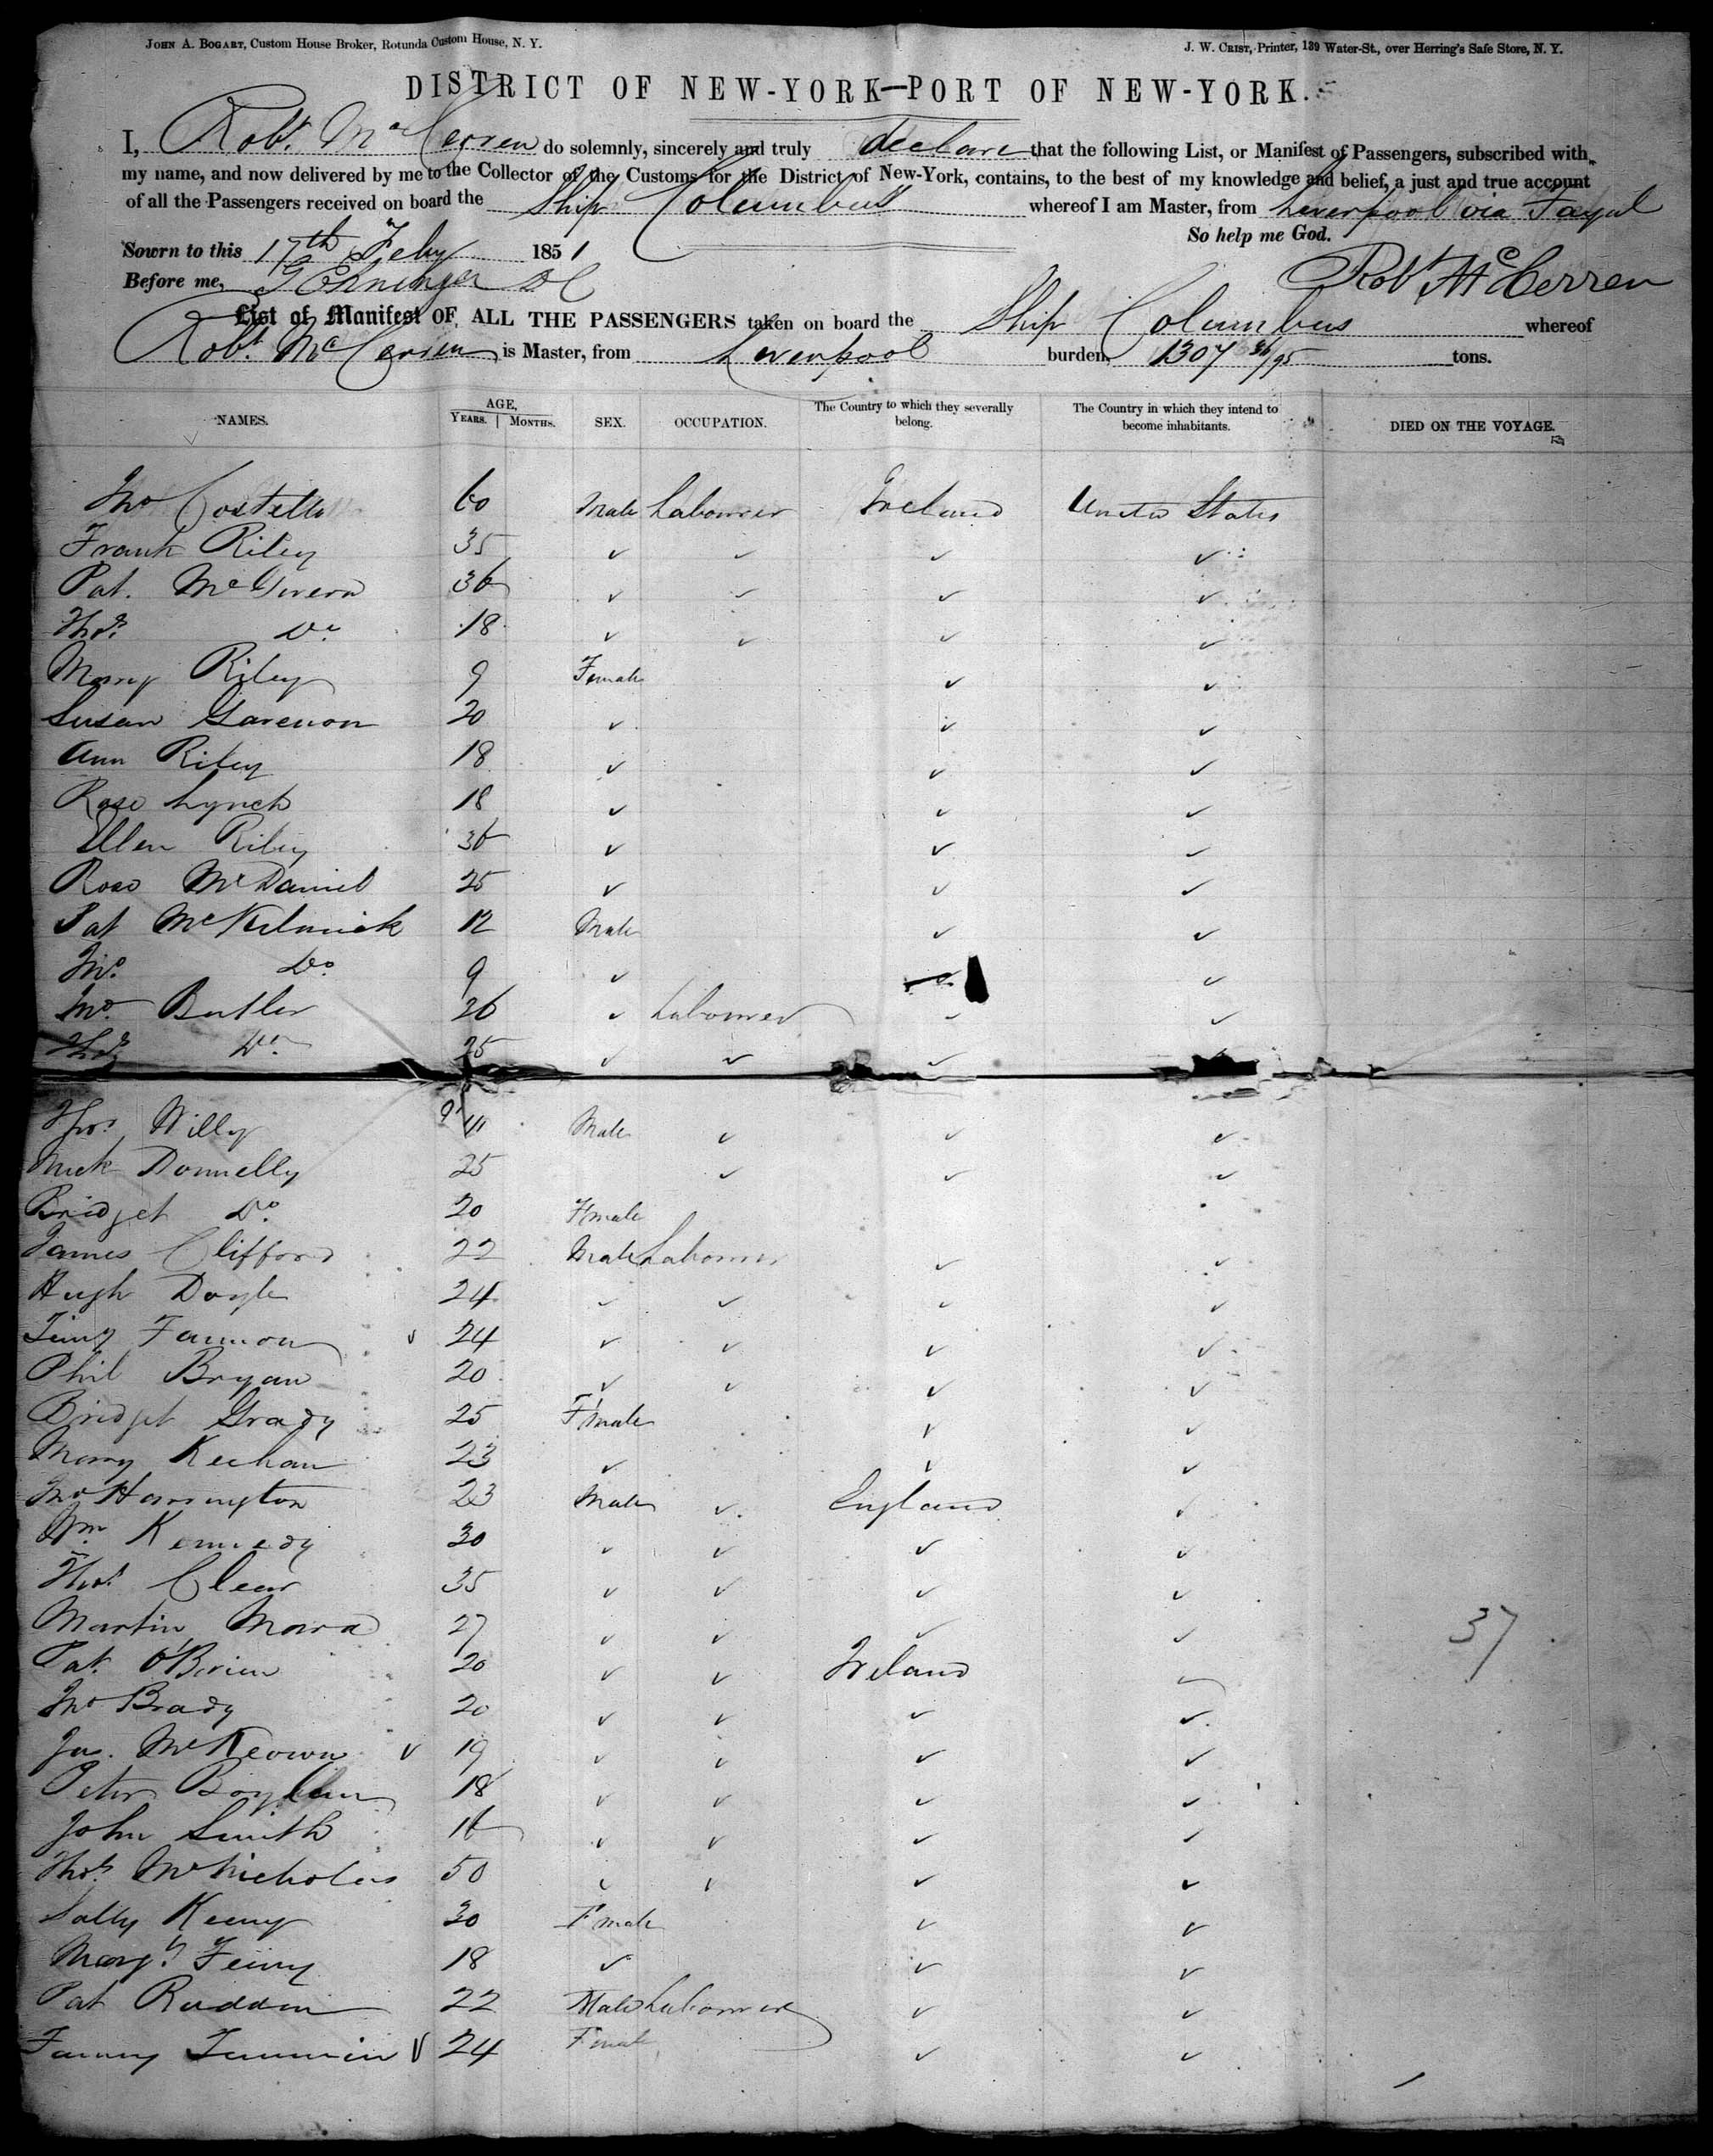 JOHN A. BOGART, Custom House Broker, Rotunda Custom House, N. Y.
J. W. CRIST, Printer, 139 Water-St., over Herring's Safe Store, N. Y.
DISTRICT OF NEW-YORK—PORT OF NEW-YORK.
I, Robt. McCerren do solemnly, sincerely and truly declare that the following List, or Manifest of Passengers, subscribed with
my name, and now delivered by me to the Collector of the Customs for the District of New-York, contains, to the best of my knowledge and belief, a just and true account
of all the Passengers received on board the Ship Columbus whereof I am Master, from Liverpool via Fayal
So help me God.
Sworn to this 17th Feby 1851
Before me, DC
Robt McCerren
List of Manifest OF ALL THE PASSENGERS taken on board the Ship Columbus whereof
Robt. McCerren is Master, from Liverpool burden, 1307 36/95 tons.
NAMES. AGE, YEARS. MONTHS. SEX. OCCUPATION. The Country to which they severally belong. The Country in which they intend to become inhabitants. DIED ON THE VOYAGE.
Jno Costello 60 Male Labourer Ireland United States
Frank Riley 35 ✓ ✓ ✓ ✓
Pat. McGivern 36 ✓ ✓ ✓ ✓
Thos. Do. 18 ✓ ✓ ✓ ✓
Mary Riley 9 Female ✓ ✓
Susan 20 ✓ ✓ ✓
Ann Riley 18 ✓ ✓ ✓
Rose Lynch 18 ✓ ✓ ✓
Ellen Riley 36 ✓ ✓ ✓
Rose McDaniel 25 ✓ ✓ ✓
Pat 12 Male ✓ ✓
Jno. Do. 9 ✓ ✓ ✓
Jno. Butler 26 ✓ Labourer ✓ ✓
Thos Do. 25 ✓ ✓ ✓
Thos. Willy Male ✓ ✓ ✓
Mick Donnelly 25 ✓ ✓ ✓
Bridget Do. 20 Female
James Clifford 22 Male Labourer ✓ ✓
Hugh Doyle 24 ✓ ✓ ✓ ✓
Fannon ✓ 24 ✓ ✓ ✓ ✓
Phil Bryan 20 ✓ ✓ ✓ ✓
Bridget Grady 25 Female ✓ ✓
Mary Keehan 23 ✓ ✓ ✓
Jno Harrington 23 Male ✓ England ✓
Wm. Kennedy 30 ✓ ✓ ✓ ✓
Thos. Clear 35 ✓ ✓ ✓ ✓
Martin Mara 27 ✓ ✓ ✓ ✓
37
Pat. O'Brien 20 ✓ ✓ Ireland ✓
Jno Brady 20 ✓ ✓ ✓ ✓
Jas. McKeown ✓ 19 ✓ ✓ ✓ ✓
Peter Boylan 18 ✓ ✓ ✓ ✓
John Smith 16 ✓ ✓ ✓ ✓
Thos. McNicholas 50 ✓ ✓ ✓ ✓
Sally Keeny 30 Female ✓ ✓
Margt. Feeny 18 ✓ ✓ ✓
Pat Ruddin 22 Male Labourer ✓ ✓
Fanny ✓ 24 Female ✓ ✓